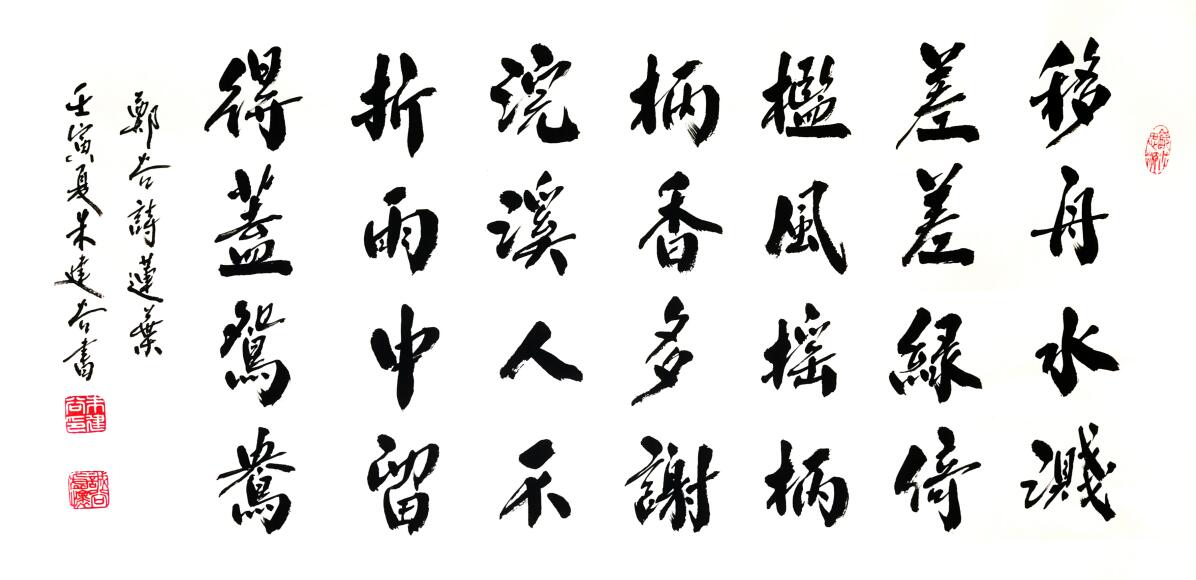 移舟水濺
差差緑倚
檻風搖柄
柄香多謝
浣溪人不
折雨中留
得蓋鴛鴦
鄭谷詩蓮葉
壬寅夏朱建谷書